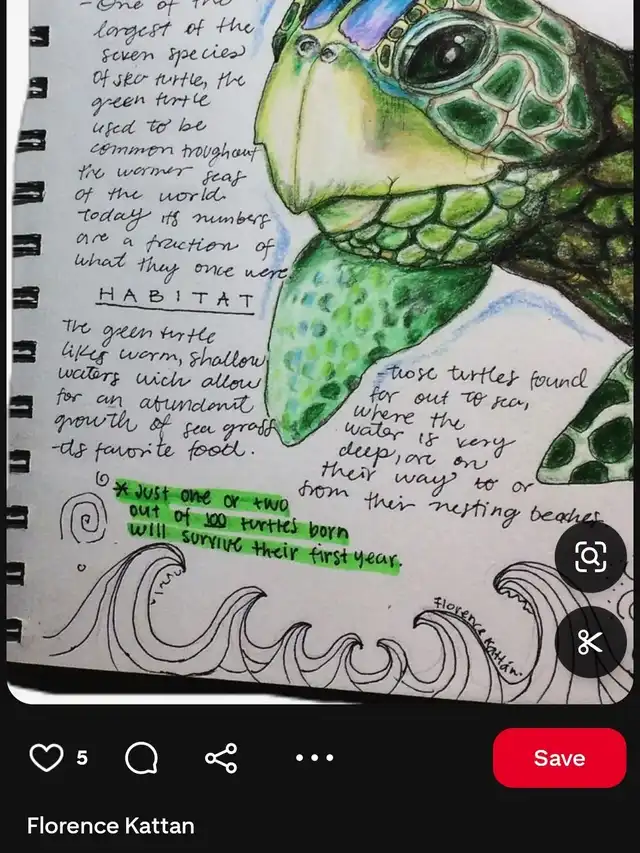 - One of the
largest of the
seven species
of sea turtle, the
green turtle
used to be
common troughout
the warmer seas
of the world.
Today its numbers
are a fraction of
what they once were
HABITAT
The green turtle
likes warm, shallow
waters wich allow
for an abundant
growth of sea grass
-its favorite food.
-those turtles found
far out to sea,
where the
water is very
deep, are on
their way to or
from their nesting beaches.
* Just one or two
out of 100 turtles born
will survive their first year.
Florence Kattán.
5
Save
Florence Kattan